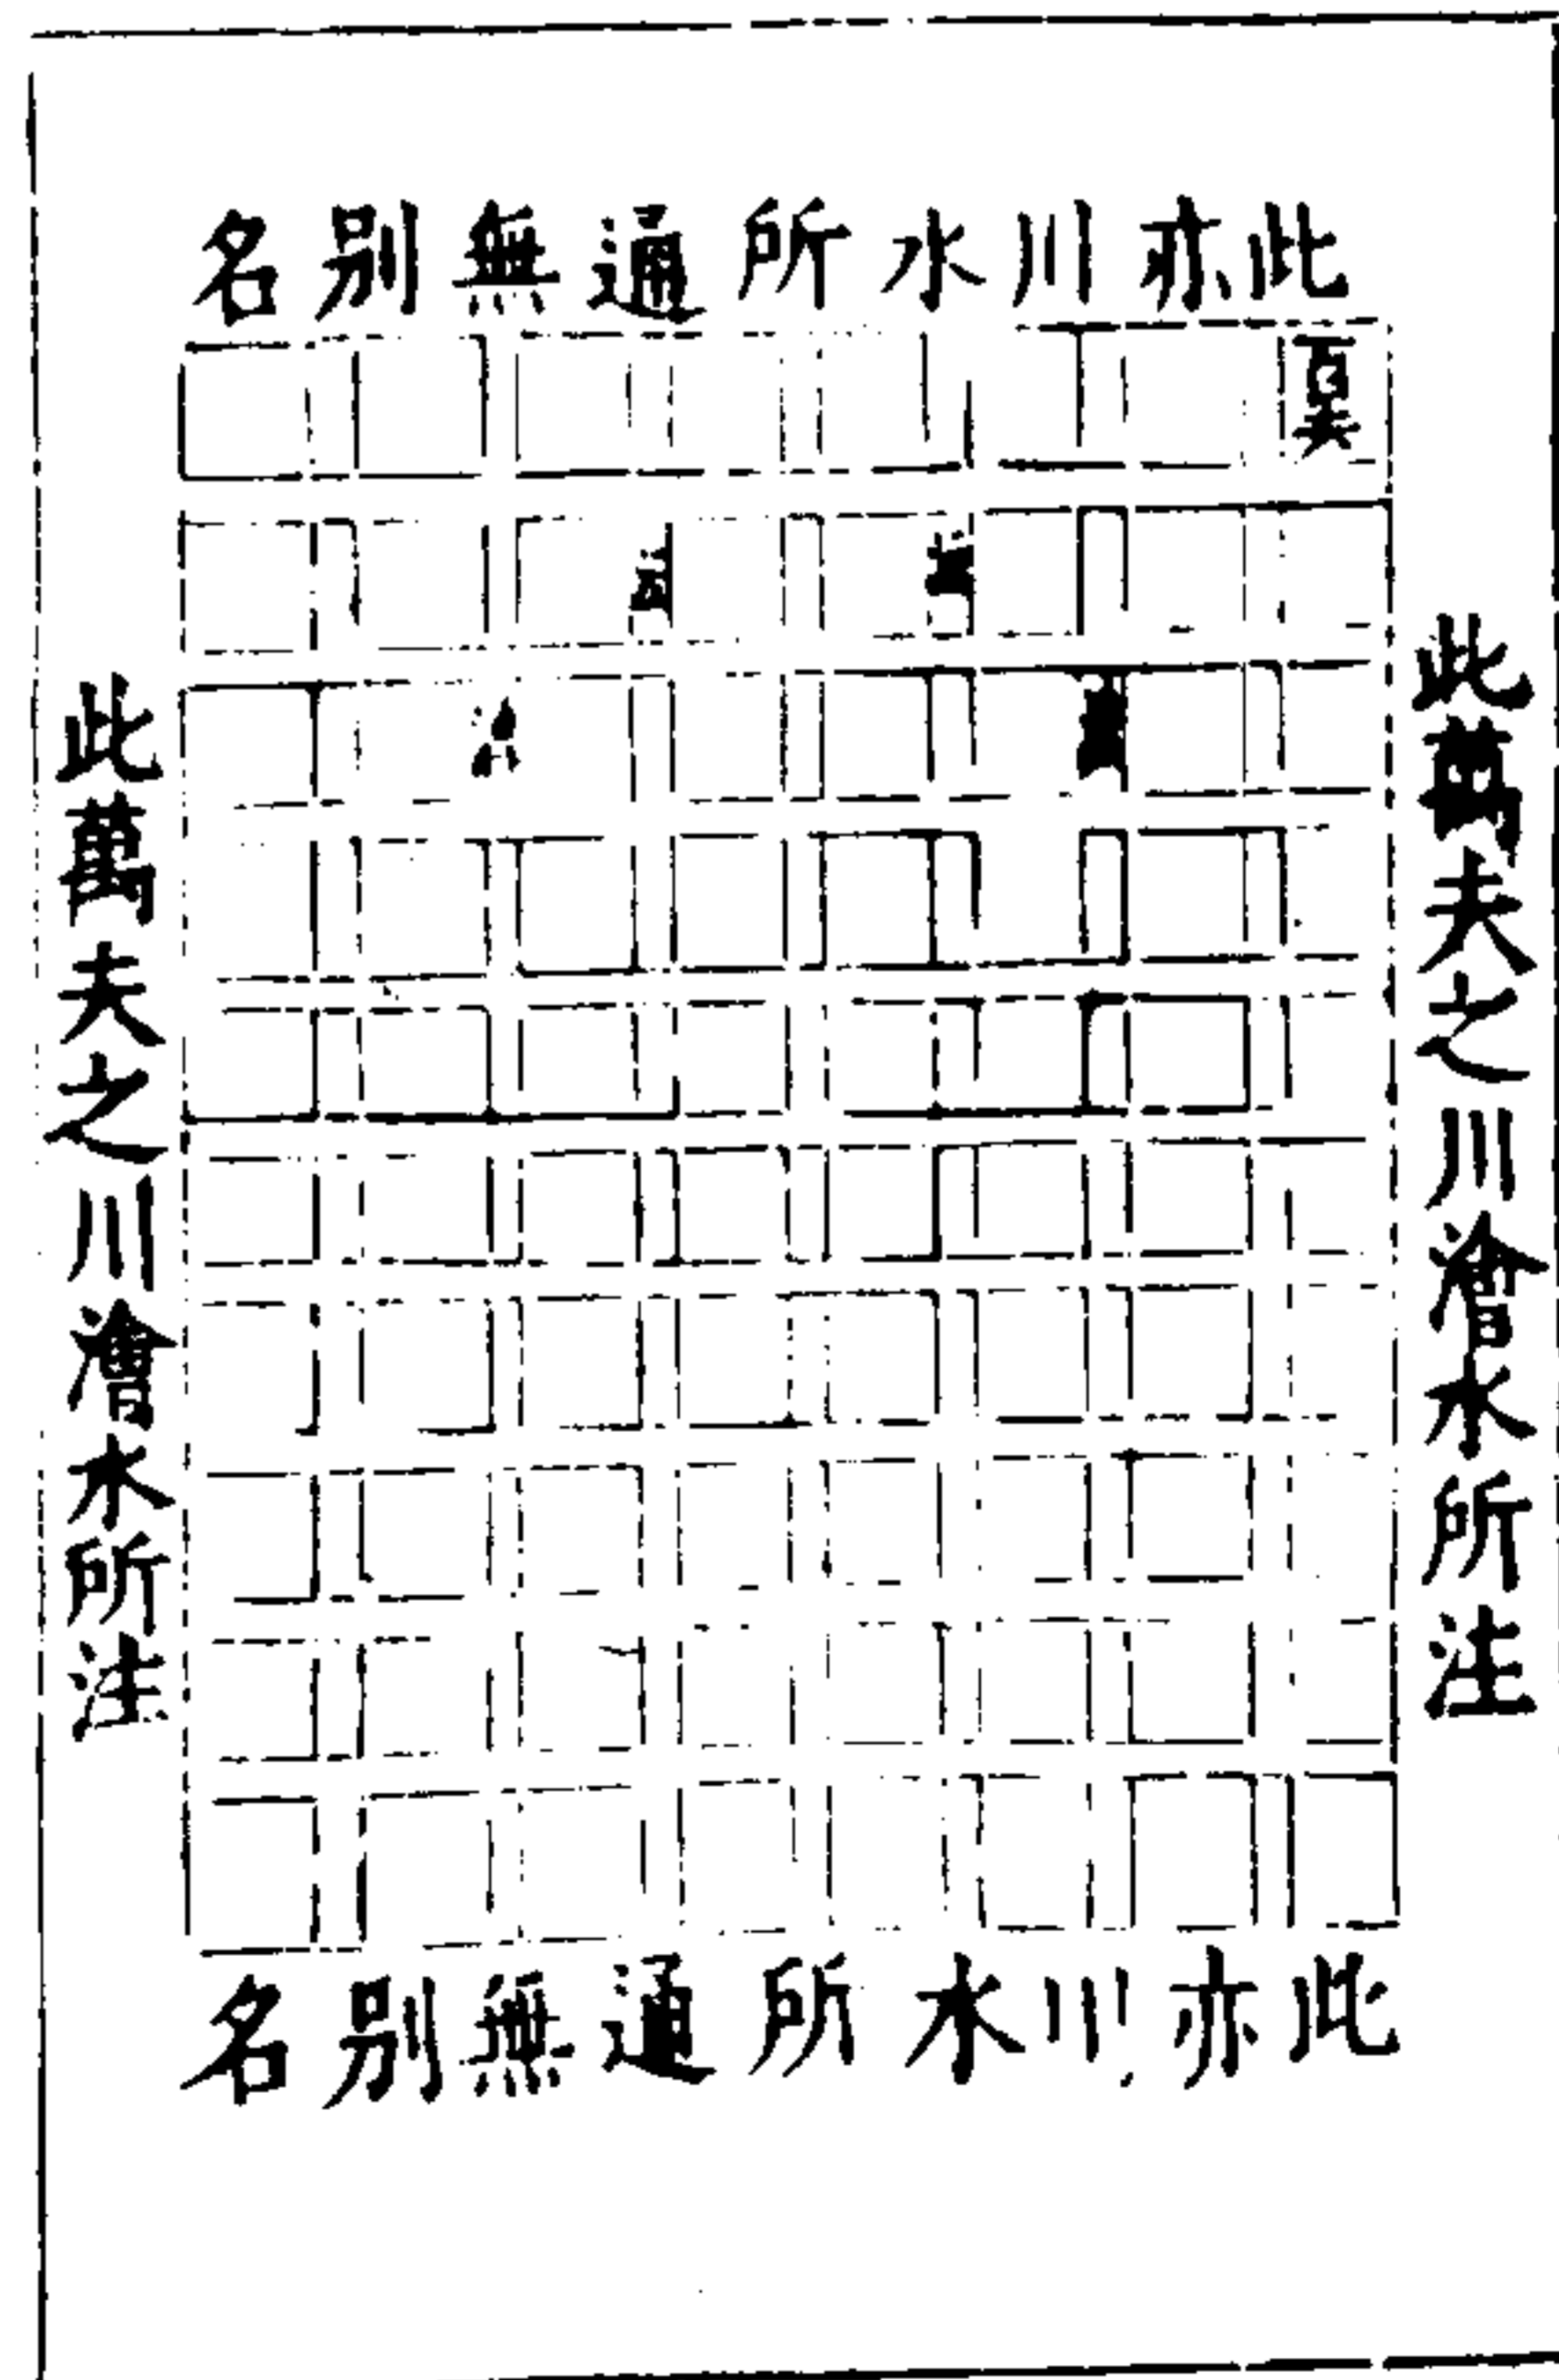 此亦川水所通無別名
此萬夫之川澮水所注
百夫
此萬夫之川澮水所注
此亦川水所通無別名